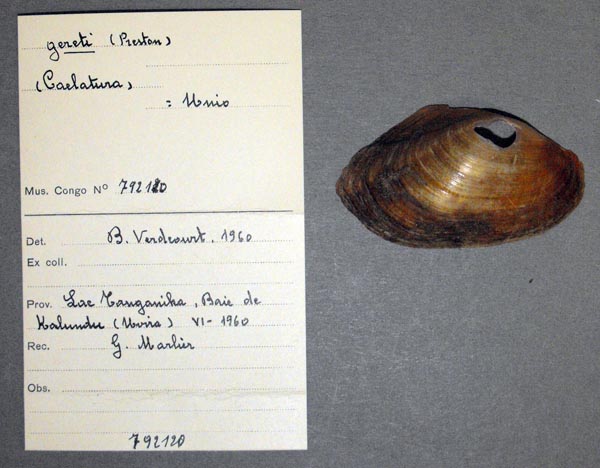 gereti (Preston)
(Caelatura)
= Unio
Mus. Congo Nº 792120
Det. B. Verdcourt. 1960
Ex coll.
Prov. Lac Tanganika, Baie de
Kalundu (Uvira) VI- 1960
Rec. G. Marlier
Obs.
792120